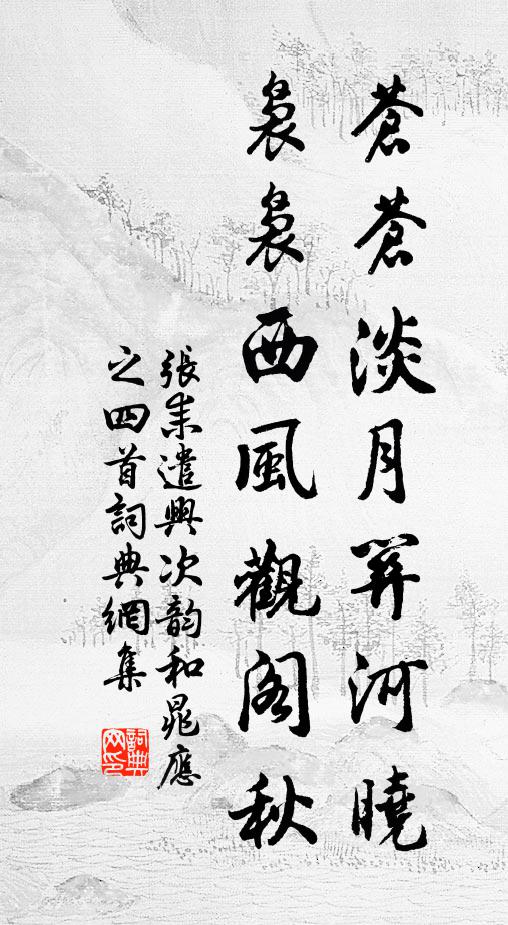 蒼蒼淡月關河曉
裊裊西風觀閣秋
張耒遣興次韵和晁應
之四首詞典網集
詞典
网印